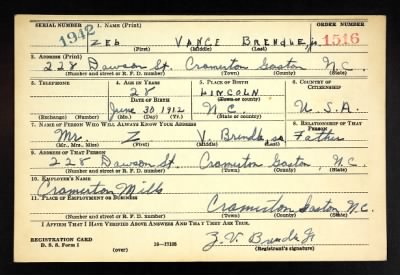 SERIAL NUMBER 1. NAME (Print) ORDER NUMBER
1942 ZEB VANCE BRENDLE, Jr. 1516
(First) (Middle) (Last)
2. ADDRESS (Print)
228 Dawson St. Cramerton Gaston N.C.
(Number and street or R. F. D. number) (Town) (County) (State)
3. TELEPHONE 4. AGE IN YEARS 5. PLACE OF BIRTH 6. COUNTRY OF CITIZENSHIP
28 LINCOLN
DATE OF BIRTH (Town or county)
June 30 1912 N.C. U.S.A.
(Exchange) (Number) (Mo.) (Day) (Yr.) (State or country)
7. NAME OF PERSON WHO WILL ALWAYS KNOW YOUR ADDRESS 8. RELATIONSHIP OF THAT PERSON
Mr. Z V. Brendle, sr. Father
(Mr., Mrs., Miss) (First) (Middle) (Last)
9. ADDRESS OF THAT PERSON
228 Dawson St. Cramerton Gaston, N.C.
(Number and street or R. F. D. number) (Town) (County) (State)
10. EMPLOYER'S NAME
Cramerton Mills
11. PLACE OF EMPLOYMENT OR BUSINESS
Cramerton, Gaston N.C.
(Number and street or R. F. D. number) (Town) (County) (State)
I AFFIRM THAT I HAVE VERIFIED ABOVE ANSWERS AND THAT THEY ARE TRUE.
REGISTRATION CARD
D. S. S. Form 1 (over) 16—17105
Z. V. Brendle Jr
(Registrant's signature)